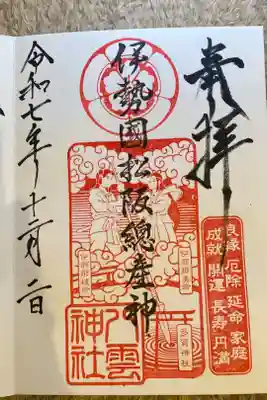 奉拝
伊勢國松阪總産神
令和七年十二月二日
良縁 厄除 延命 家庭
成就 開運 長寿 円満
多賀神社
八雲
神社